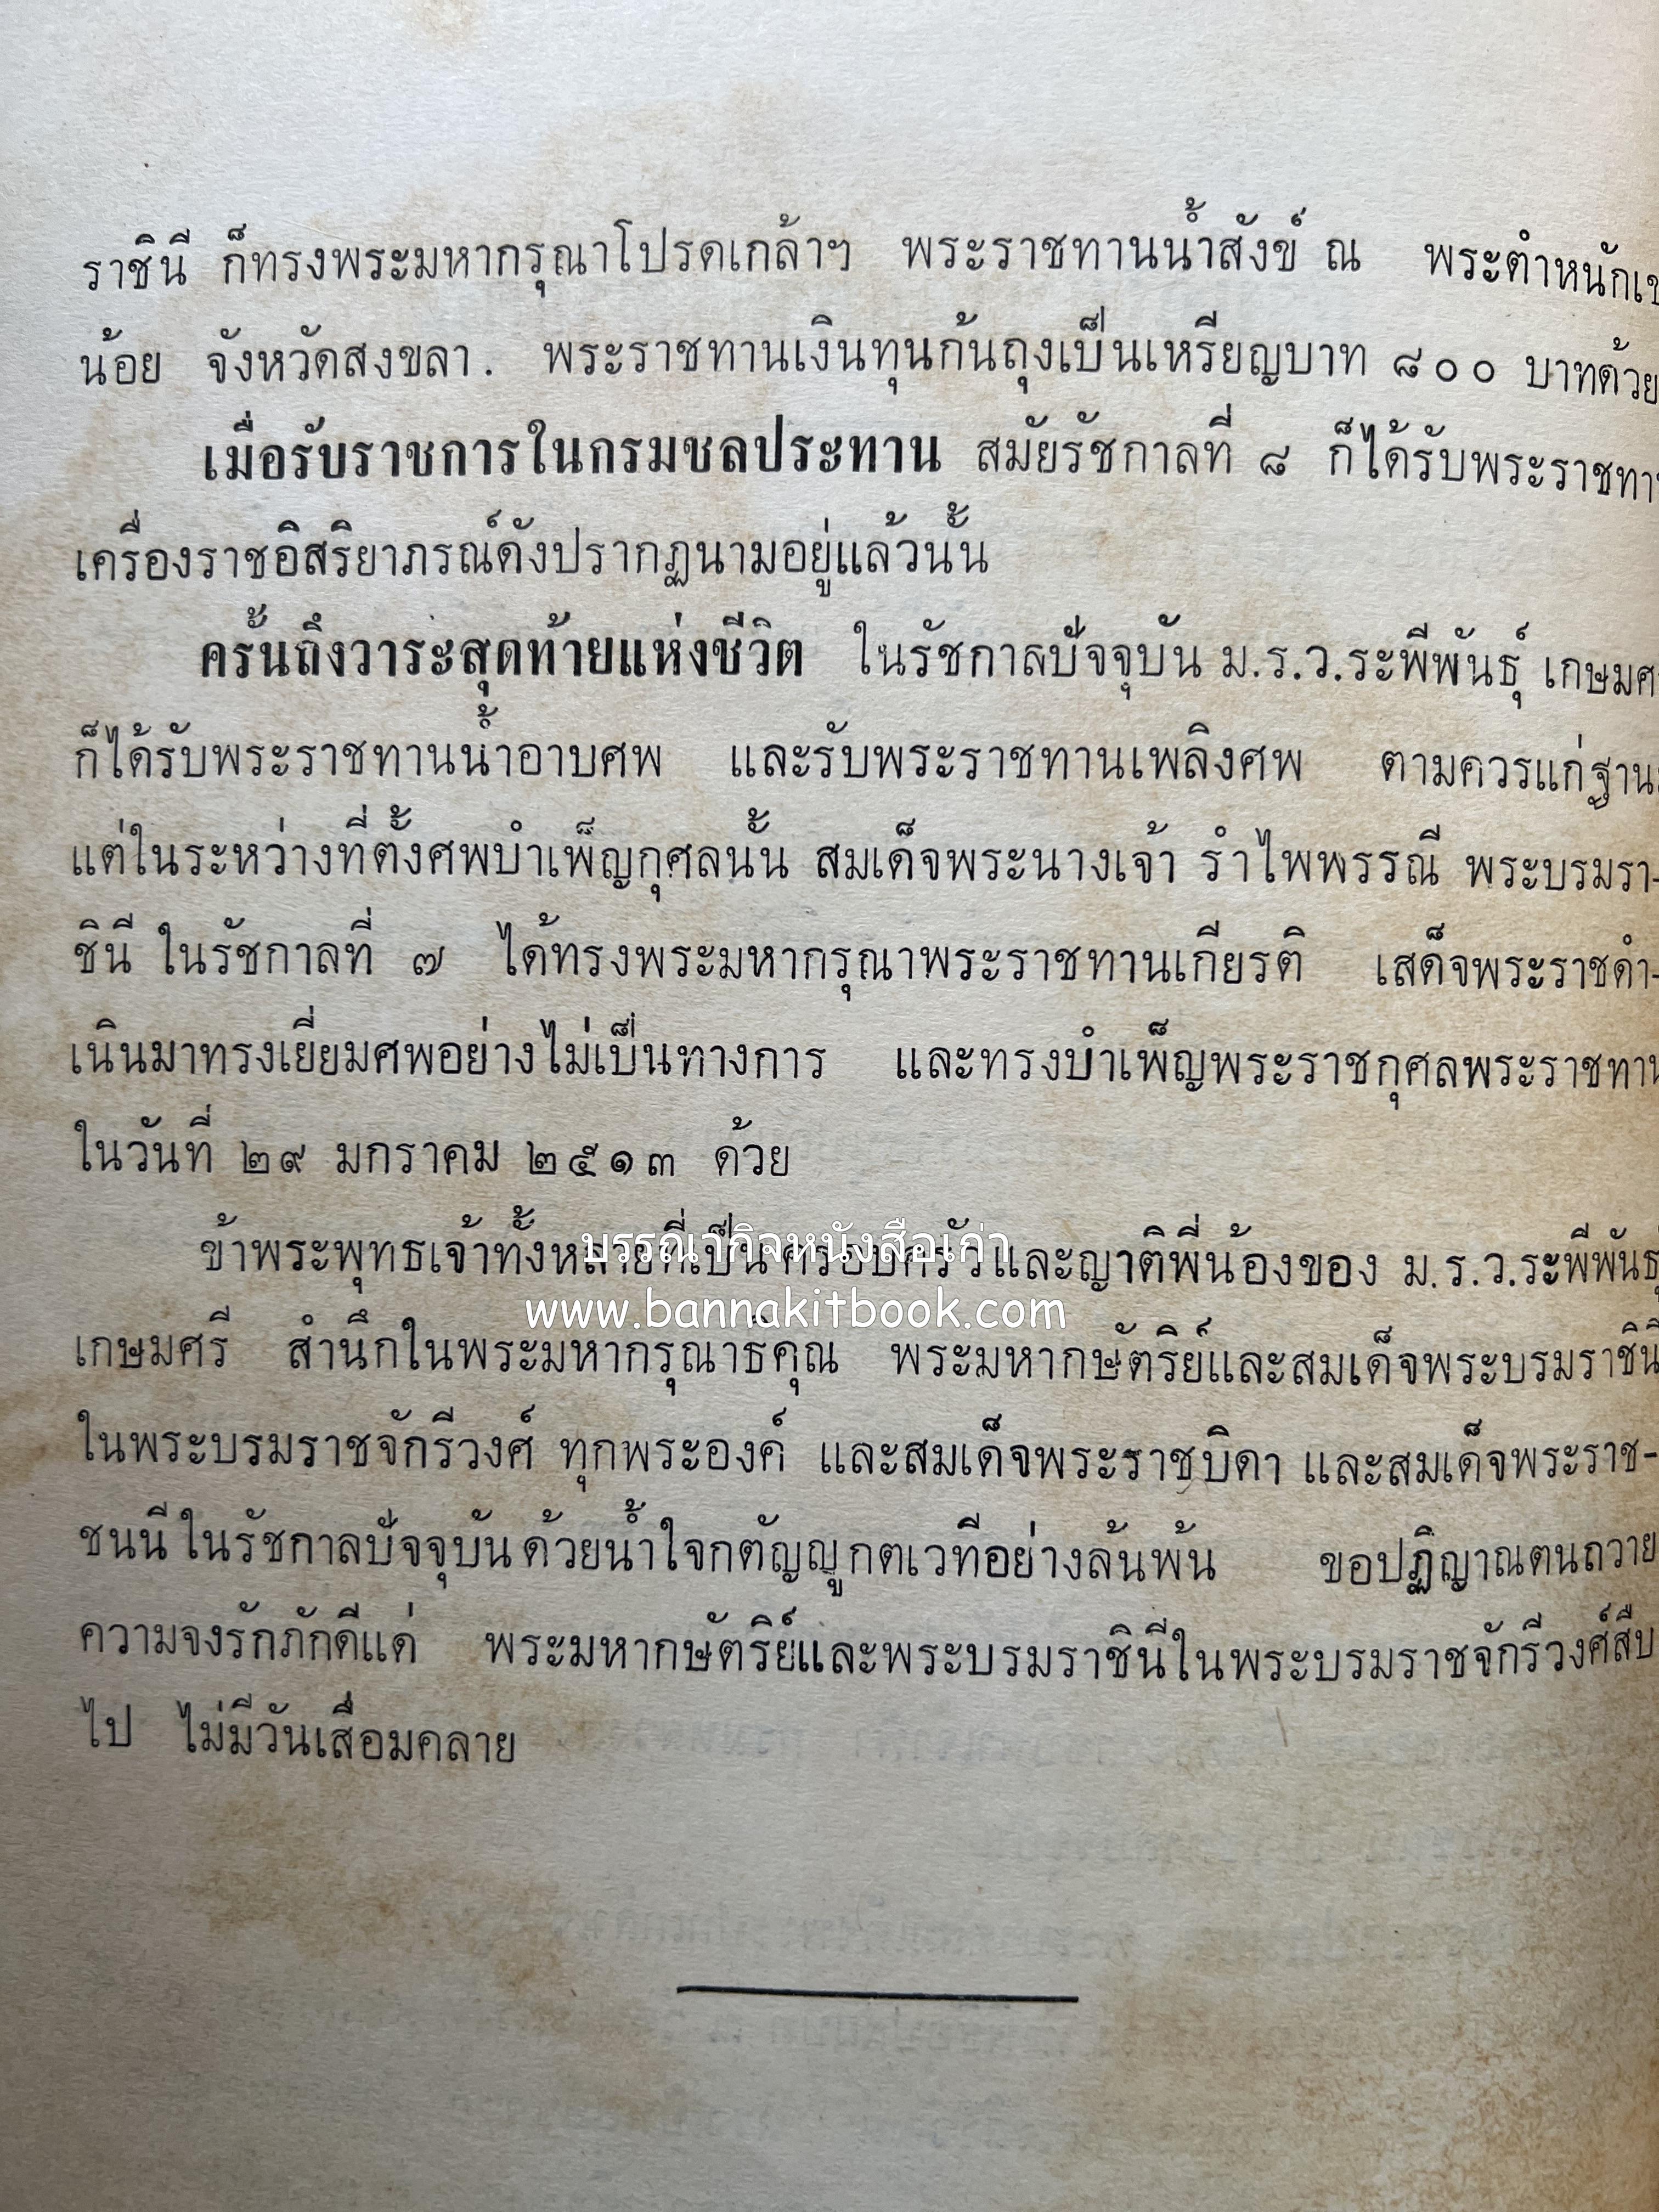 ราชินี ก็ทรงพระมหากรุณาโปรดเกล้าฯ พระราชทานน้ำสังข์ ณ พระตำหนักเข
น้อย จังหวัดสงขลา. พระราชทานเงินทุนก้นถุงเป็นเหรียญบาท ๘๐๐ บาทด้วย
เมื่อรับราชการในกรมชลประทาน สมัยรัชกาลที่ ๘ ก็ได้รับพระราชทาน
เครื่องราชอิสริยาภรณ์ดังปรากฏนามอยู่แล้วนั้น
ครั้นถึงวาระสุดท้ายแห่งชีวิต ในรัชกาลปัจจุบัน ม.ร.ว.ระพีพันธุ์ เกษมศ
ก็ได้รับพระราชทานน้ำอาบศพ และรับพระราชทานเพลิงศพ ตามควรแก่ฐาน
แต่ในระหว่างที่ตั้งศพบำเพ็ญกุศลนั้น สมเด็จพระนางเจ้า รำไพพรรณี พระบรมรา-
ชินี ในรัชกาลที่ ๗ ได้ทรงพระมหากรุณาพระราชทานเกียรติ เสด็จพระราชดำ-
เนินมาทรงเยี่ยมศพอย่างไม่เป็นทางการ และทรงบำเพ็ญพระราชกุศลพระราชทาน
ในวันที่ ๒๙ มกราคม ๒๕๑๓ ด้วย
ข้าพระพุทธเจ้าทั้งหลายที่เป็นครอบครัวและญาติพี่น้องของ ม.ร.ว.ระพีพันธุ์
บรรณากิจหนังสือเก่า
www.bannakitbook.com
เกษมศรี สำนึกในพระมหากรุณาธิคุณ พระมหากษัตริย์และสมเด็จพระบรมราชินี
ในพระบรมราชจักรีวงศ์ ทุกพระองค์ และสมเด็จพระราชบิดา และสมเด็จพระราช-
ชนนี ในรัชกาลปัจจุบัน ด้วยน้ำใจกตัญญูกตเวทีอย่างล้นพ้น ขอปฏิญาณตนถวาย
ความจงรักภักดีแด่ พระมหากษัตริย์และพระบรมราชินีในพระบรมราชจักรีวงศ์สืบ
ไป ไม่มีวันเสื่อมคลาย